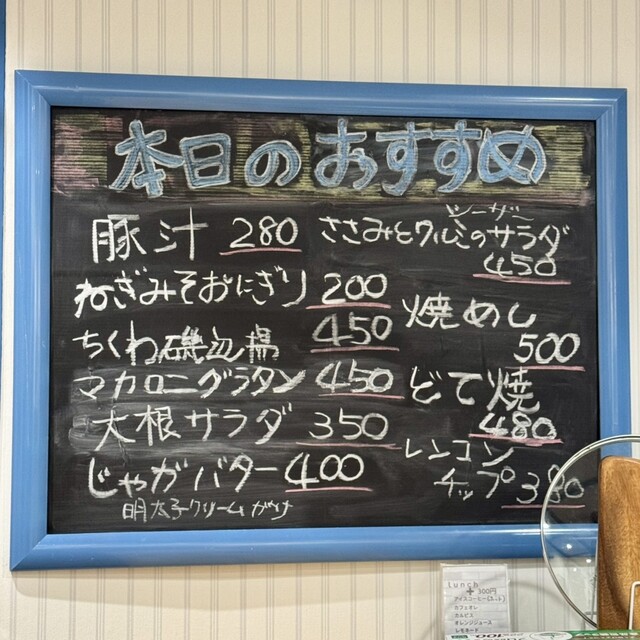 本日のおすすめ
豚汁 280
ねぎみそおにぎり 200
ちくわ磯辺揚 450
マカロニグラタン 450
大根サラダ 350
じゃがバター 400
明太子クリームがけ
シーザー
ささみとクルミのサラダ
450
焼めし
500
どて焼
480
レンコン
チップ 380
Lunch
+300円
アイスコーヒー(ホット)
カフェオレ
カルピス
オレンジジュース
レモネード